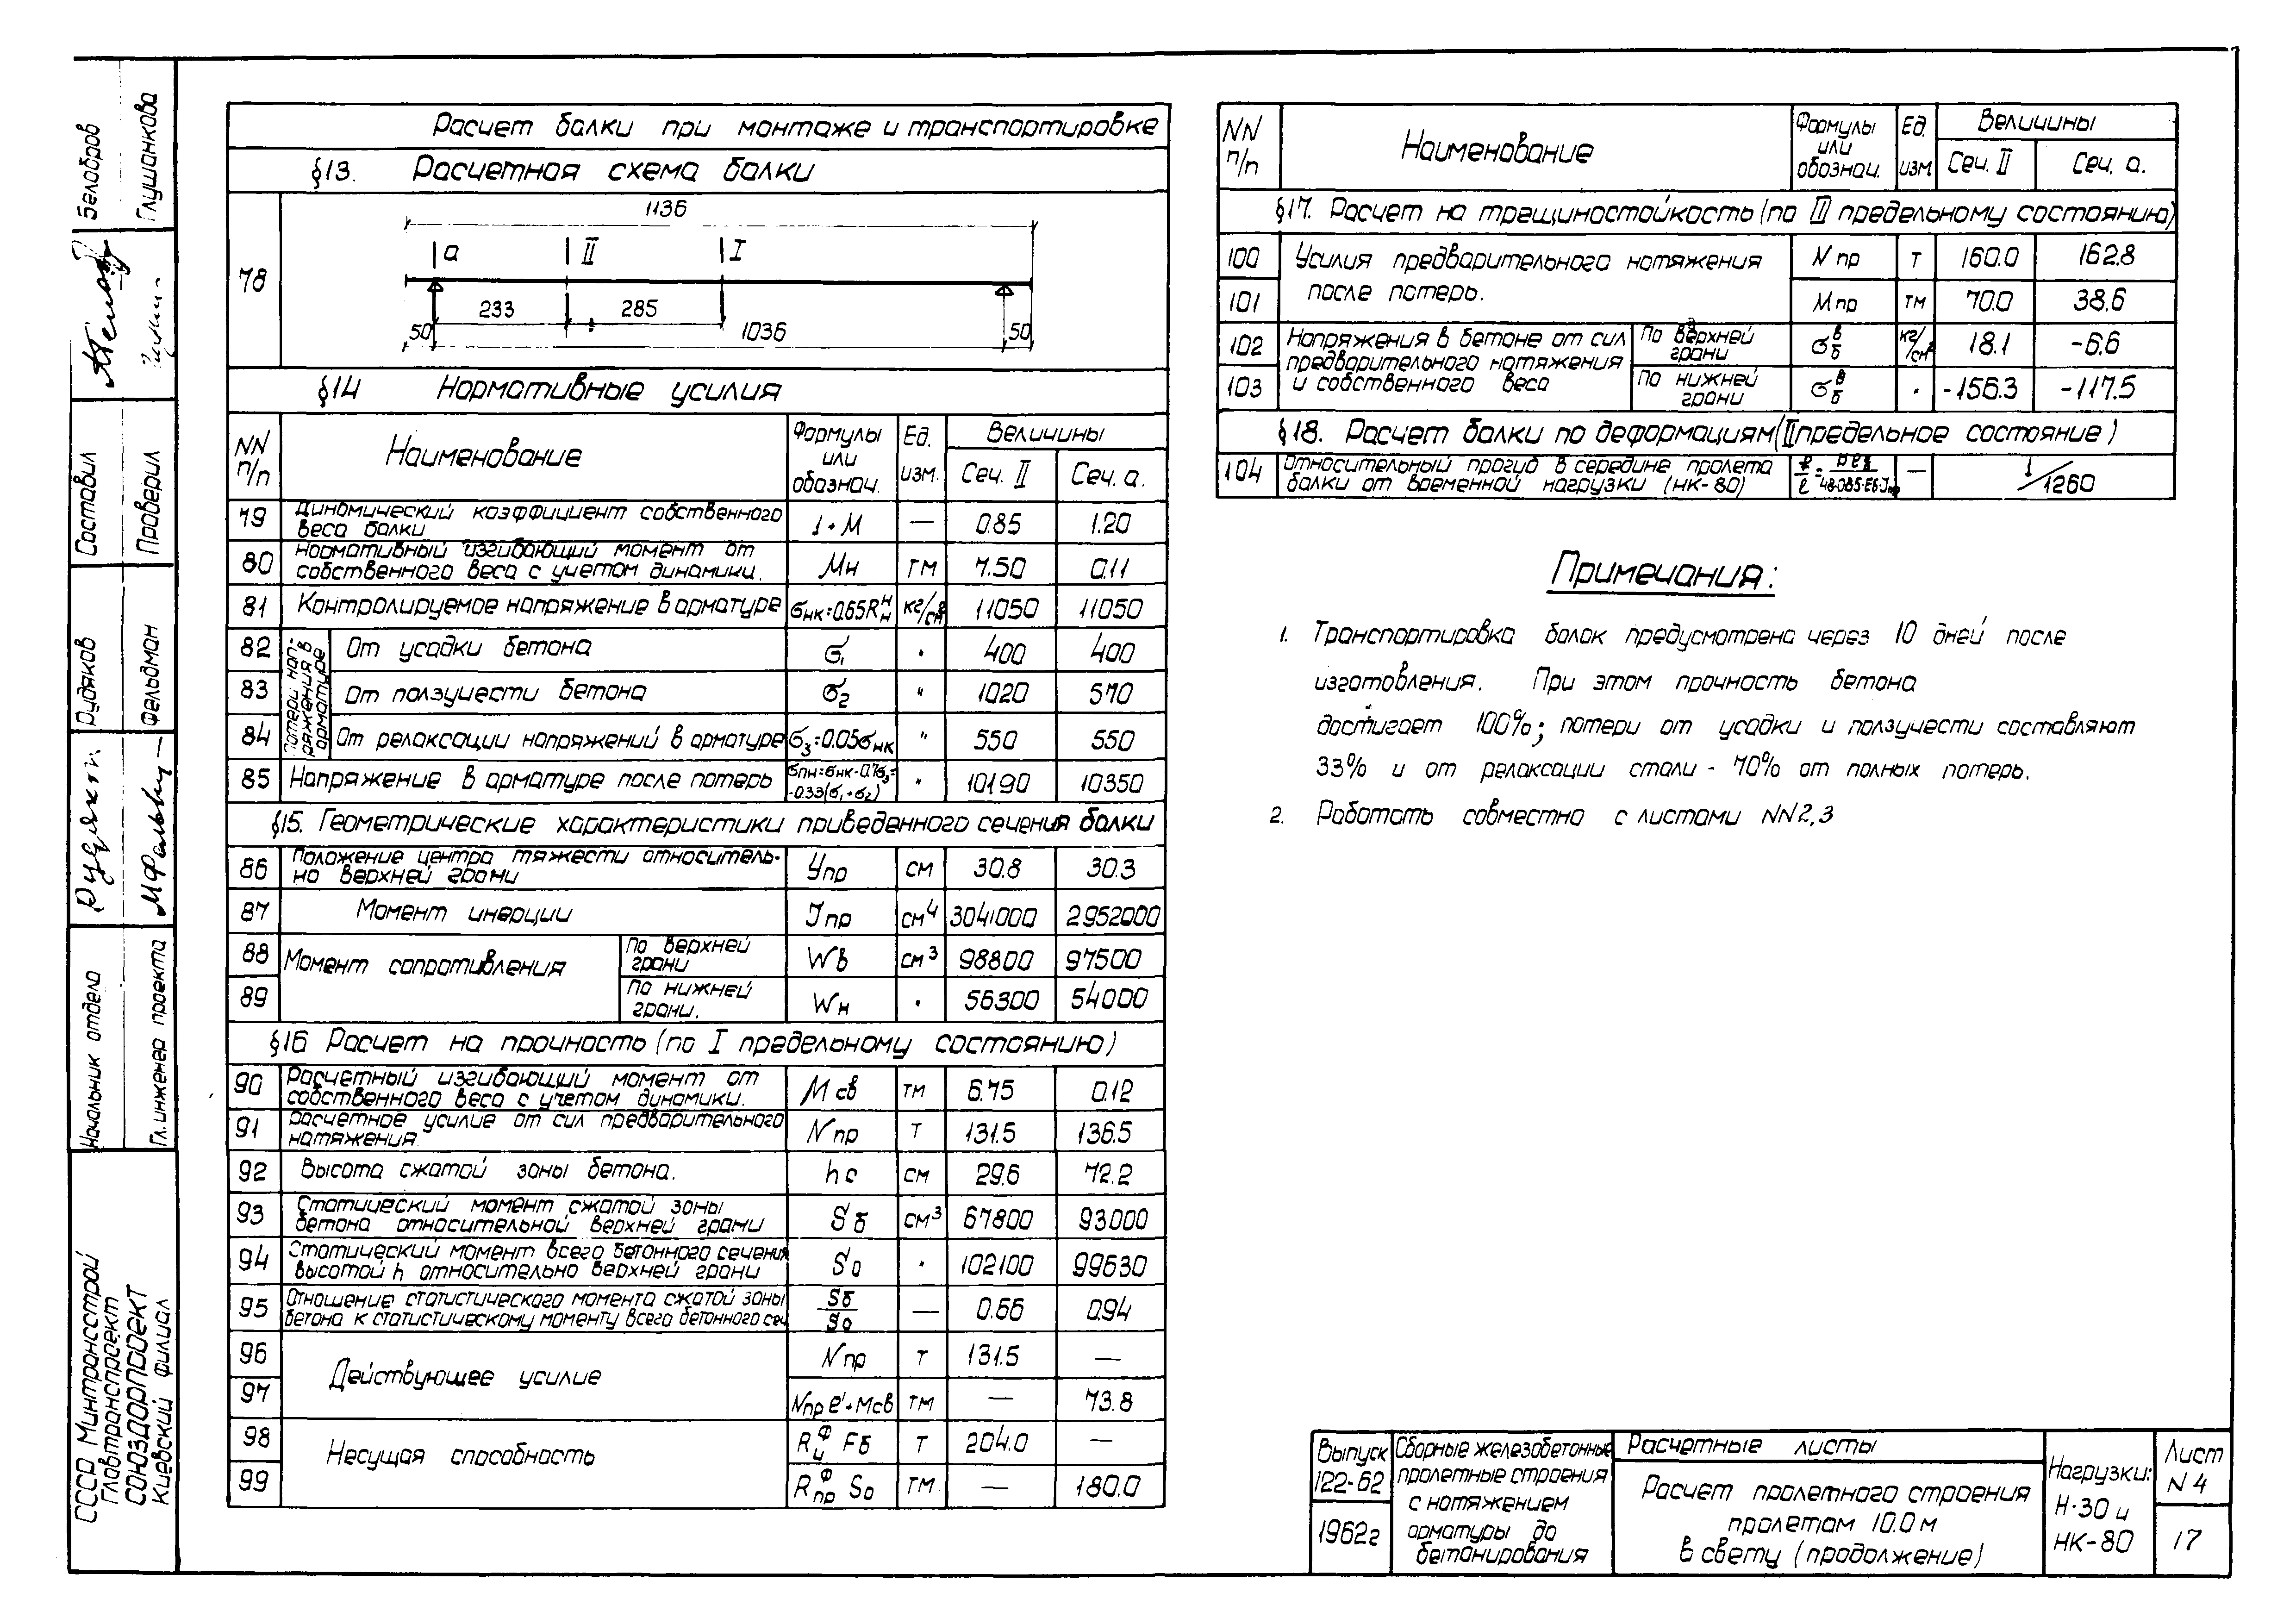 Расчет балки при монтаже и транспортировке
§13. Расчетная схема балки
78
1136
а II I
233 285
50 1036 50
§14 Нормативные усилия
NN п/п Наименование Формулы или обознач. Ед. изм. Величины
Сеч. II Сеч. а.
79 Динамический коэффициент собственного веса балки 1+М — 0.85 1.20
80 Нормативный изгибающий момент от собственного веса с учетом динамики. Мн тм 7.50 0.11
81 Контролируемое напряжение в арматуре σнк=0.65Rнн кг/см² 11050 11050
Потери напряжения в арматуре
82 От усадки бетона σ₁ " 400 400
83 От ползучести бетона σ₂ " 1020 570
84 От релаксации напряжений в арматуре σ₃=0.05σнк " 550 550
85 Напряжение в арматуре после потерь σпн=σнк-0.7σ₃= -0.33(σ₁+σ₂) " 10190 10350
§15. Геометрические характеристики приведенного сечения балки
86 Положение центра тяжести относительно верхней грани Упр см 30.8 30.3
87 Момент инерции Jпр см⁴ 3041000 2952000
88 Момент сопротивления По верхней грани Wв см³ 98800 97500
89 По нижней грани. Wн " 56300 54000
§16 Расчет на прочность (по I предельному состоянию)
90 Расчетный изгибающий момент от собственного веса с учетом динамики. Мсв тм 6.75 0.12
91 Расчетное усилие от сил предварительного натяжения. Nпр т 131.5 136.5
92 Высота сжатой зоны бетона. hс см 29.6 72.2
93 Статический момент сжатой зоны бетона относительной верхней грани Sб см³ 67800 93000
94 Статический момент всего бетонного сечения высотой h относительно верхней грани Sо " 102100 99630
95 Отношение статистического момента сжатой зоны бетона к статистическому моменту всего бетонного сеч. Sб/Sо — 0.66 0.94
96 Действующее усилие Nпр т 131.5 —
97 Nпр e'+Мсв тм — 73.8
98 Несущая способность Rиф Fб т 204.0 —
99 Rпрф Sо тм — 180.0
NN п/п Наименование Формулы или обознач. Ед. изм Величины
Сеч. II Сеч. а.
§17. Расчет на трещиностойкость (по III предельному состоянию)
100 Усилия предварительного натяжения Nпр т 160.0 162.8
101 после потерь. Мпр тм 70.0 38.6
102 Напряжения в бетоне от сил предварительного натяжения и собственного веса По верхней грани σбв кг/см² 18.1 -6.6
103 По нижней грани σбв " -156.3 -117.5
§18. Расчет балки по деформациям (II предельное состояние)
104 Относительный прогиб в середине пролета балки от временной нагрузки (НК-80) — 1/1260
Примечания:
1. Транспортировка балок предусмотрена через 10 дней после
изготовления. При этом прочность бетона
достигает 100%; потери от усадки и ползучести составляют
33% и от релаксации стали - 70% от полных потерь.
2. Работать совместно с листами NN2,3
Выпуск 122-62
1962г
Сборные железобетонные
пролетные строения
с натяжением
арматуры до
бетонирования
Расчетные листы
Расчет пролетного строения
пролетам 10.0м
в свету (продолжение)
Нагрузки:
Н-30 и
НК-80
Лист
N4
17
СССР Минтрансстрой
Главтранспроект
СОЮЗДОРПРОЕКТ
Киевский филиал
Начальник отдела Рудяков
Гл. инженер проекта Фельдман
Составил Белобров
Проверил Глушанкова